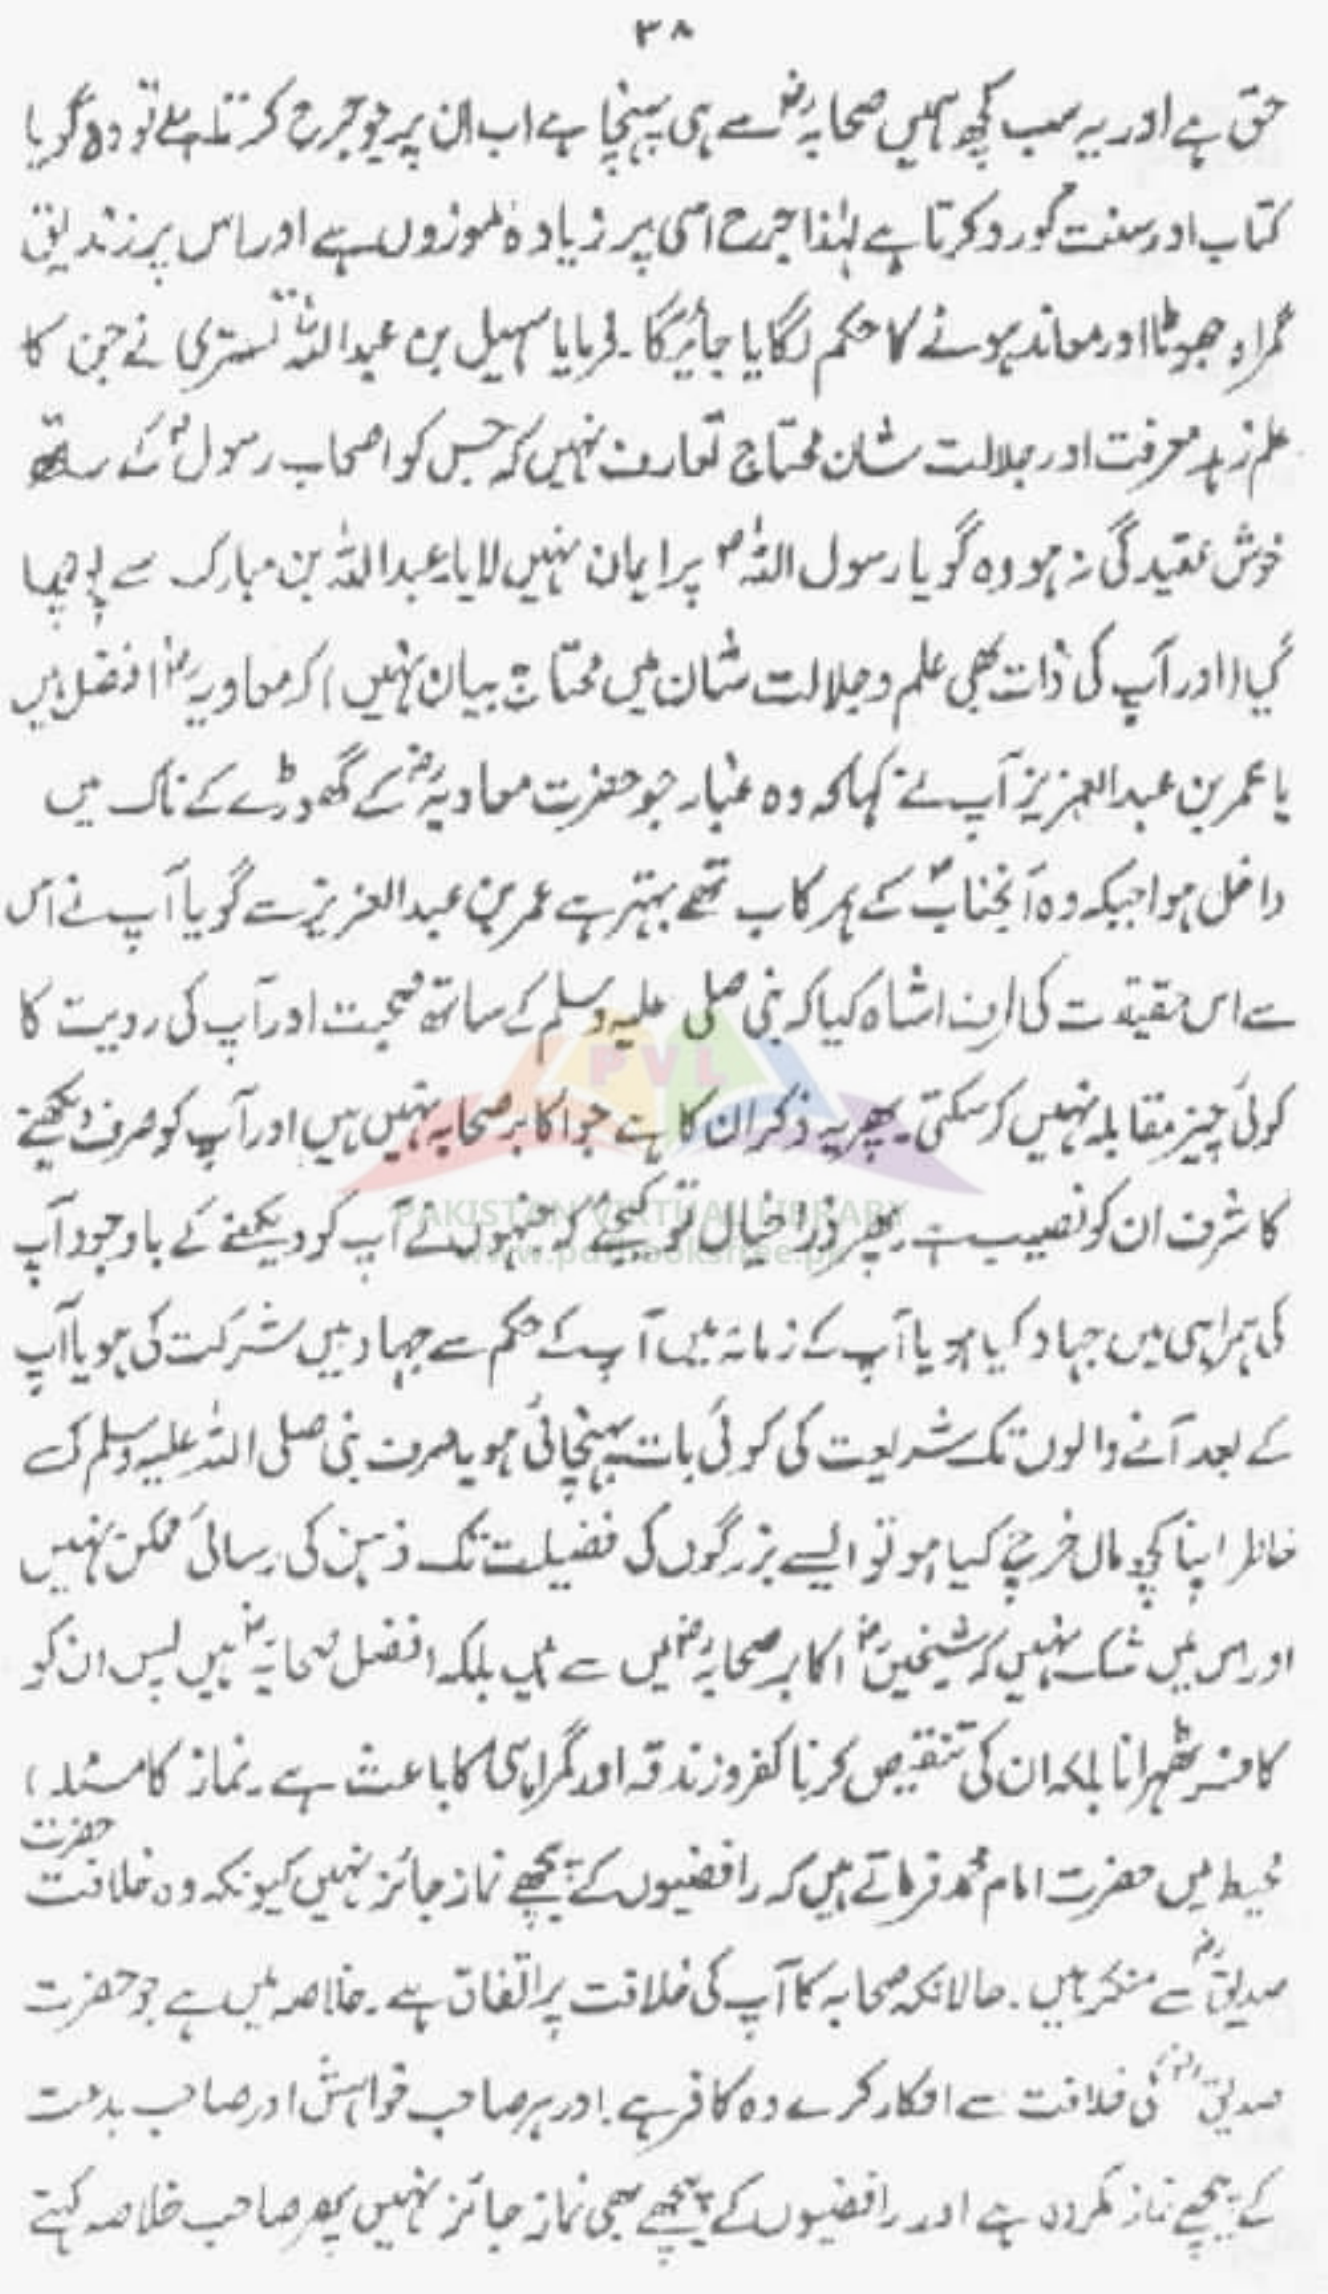 ۳۸
حق ہے اور یہ سب کچھ ہمیں صحابہؓ سے ہی پہنچا ہے اب ان پر جو جرح کرتا ہے تو وہ گویا
کتاب اور سنت کو رد کرتا ہے لہٰذا جرح اسی پر زیادہ موزوں ہے اور اس پر زندیق
گمراہ جھوٹا اور معاند ہونے کا حکم لگایا جائیگا۔ فرمایا سہیل بن عبداللہ تستری نے جن کا
علم زہد معرفت اور جلالت شان محتاج تعارف نہیں کہ جس کو اصحاب رسولؐ کے ساتھ
خوش عقیدگی نہ ہو وہ گویا رسول اللہؐ پر ایمان نہیں لایا۔ عبداللہ بن مبارک سے پوچھا
گیا (اور آپ کی ذات بھی علم و جلالت شان میں محتاج بیان نہیں) کہ معاویہؓ افضل ہیں
یا عمر بن عبدالعزیز آپ نے کہا کہ وہ غبار جو حضرت معاویہؓ کے گھوڑے کے ناک میں
داخل ہوا جبکہ وہ آنجنابؐ کے ہمرکاب تھے بہتر ہے عمر بن عبدالعزیز سے گویا آپ نے اس
سے اس حقیقت کی طرف اشاہ کیا کہ نبی صلی علیہ وسلم کے ساتھ صحبت اور آپ کی رویت کا
کوئی چیز مقابلہ نہیں کر سکتی۔ پھر یہ ذکر ان کا ہے جو اکابر صحابہ نہیں ہیں اور آپ کو صرف دیکھنے
کا شرف ان کو نصیب ہے۔ پھر ذرا خیال تو کیجئے کہ جنہوں نے آپ کو دیکھنے کے باوجود آپ
کی ہمراہی میں جہاد کیا ہو یا آپ کے زمانہ میں آپ کے حکم سے جہاد میں شرکت کی ہو یا آپ
کے بعد آنے والوں تک شریعت کی کوئی بات پہنچائی ہو یا صرف نبی صلی اللہ علیہ وسلم کے
خاطر اپنا کچھ مال خرچ کیا ہو تو ایسے بزرگوں کی فضیلت تک ذہن کی رسائی ممکن نہیں
اور اس میں شک نہیں کہ شیخینؓ اکابر صحابہؓ میں سے ہیں بلکہ افضل صحابہؓ ہیں پس ان کو
کافر ٹھہرانا بلکہ ان کی تنقیص کرنا کفر و زندقہ اور گمراہی کا باعث ہے۔ نماز کا مسئلہ،
محیط میں حضرت امام محمد فرماتے ہیں کہ رافضیوں کے پیچھے نماز جائز نہیں کیونکہ وہ خلافت حضرت
صدیقؓ سے منکر ہیں۔ حالانکہ صحابہ کا آپ کی خلافت پر اتفاق ہے۔ خلاصہ میں ہے جو حضرت
صدیقؓ کی خلافت سے انکار کرے وہ کافر ہے۔ اور ہر صاحب خواہش اور صاحب بدعت
کے پیچھے نماز مکروہ ہے اور رافضیوں کے پیچھے بھی نماز جائز نہیں پھر صاحب خلاصہ کہتے
PVL
PAKISTAN VIRTUAL LIBRARY